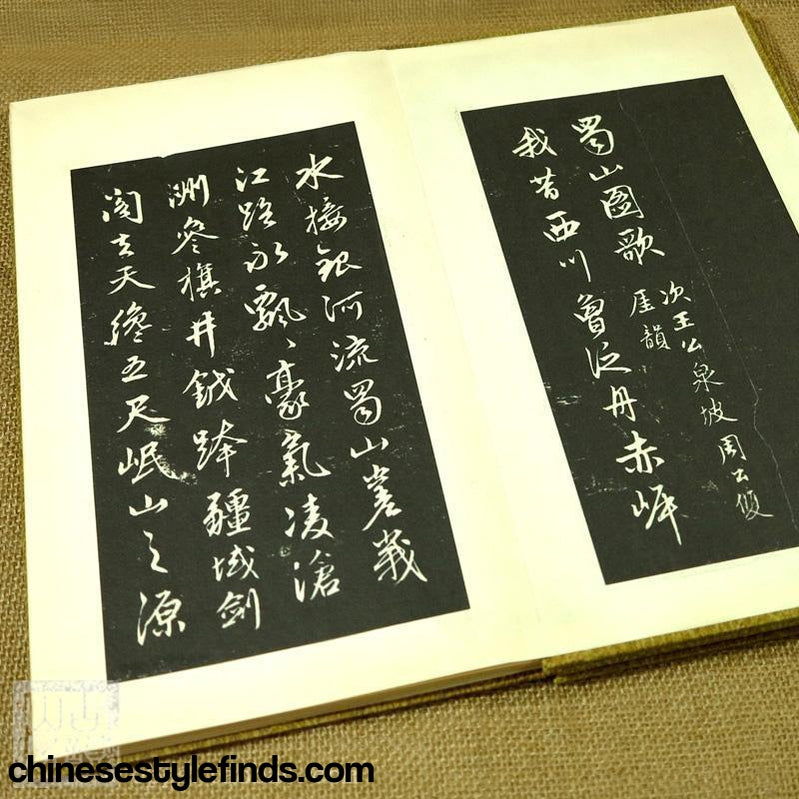 蜀山圖歌
次王公泉坡周公俊
厓韻
我昔西川曾泛丹赤岸
水接銀河流蜀山嵳峩
江路永飄〻豪氣凌滄
洲參旗井鉞跨疆域劍
閣去天纔五尺岷山之源
chinesestylefinds.com